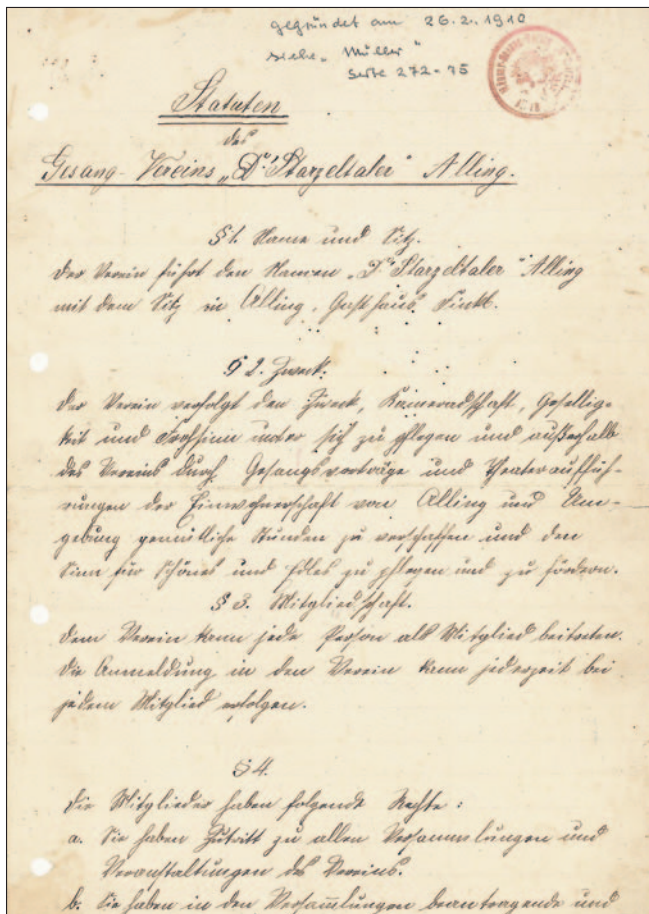 gegründet am 26.2.1910
siehe „Müller“
Seite 272-75
Statuten
des
Gesang-Vereins „D' Starzeltaler“ Alling.
§ 1. Name und Sitz.
Der Verein führt den Namen „D' Starzeltaler“ Alling
mit dem Sitz in Alling, Gasthaus Finkl.
§ 2. Zweck.
Der Verein verfolgt den Zweck, Kameradschaft, Gesellig-
keit und Frohsinn unter sich zu pflegen und außerhalb
des Vereins durch Gesangsvorträge und Theaterauffüh-
rungen der Einwohnerschaft von Alling und Um-
gebung gemütliche Stunden zu verschaffen und den
Sinn für Schönes und Edles zu pflegen und zu fördern.
§ 3. Mitgliedschaft.
Dem Verein kann jede Person als Mitglied beitreten.
Die Anmeldung in den Verein kann jederzeit bei
jedem Mitglied erfolgen.
§ 4.
Die Mitglieder haben folgende Rechte:
a. Sie haben Zutritt zu allen Versammlungen und
Veranstaltungen des Vereins.
b. Sie haben in den Versammlungen beantragende und